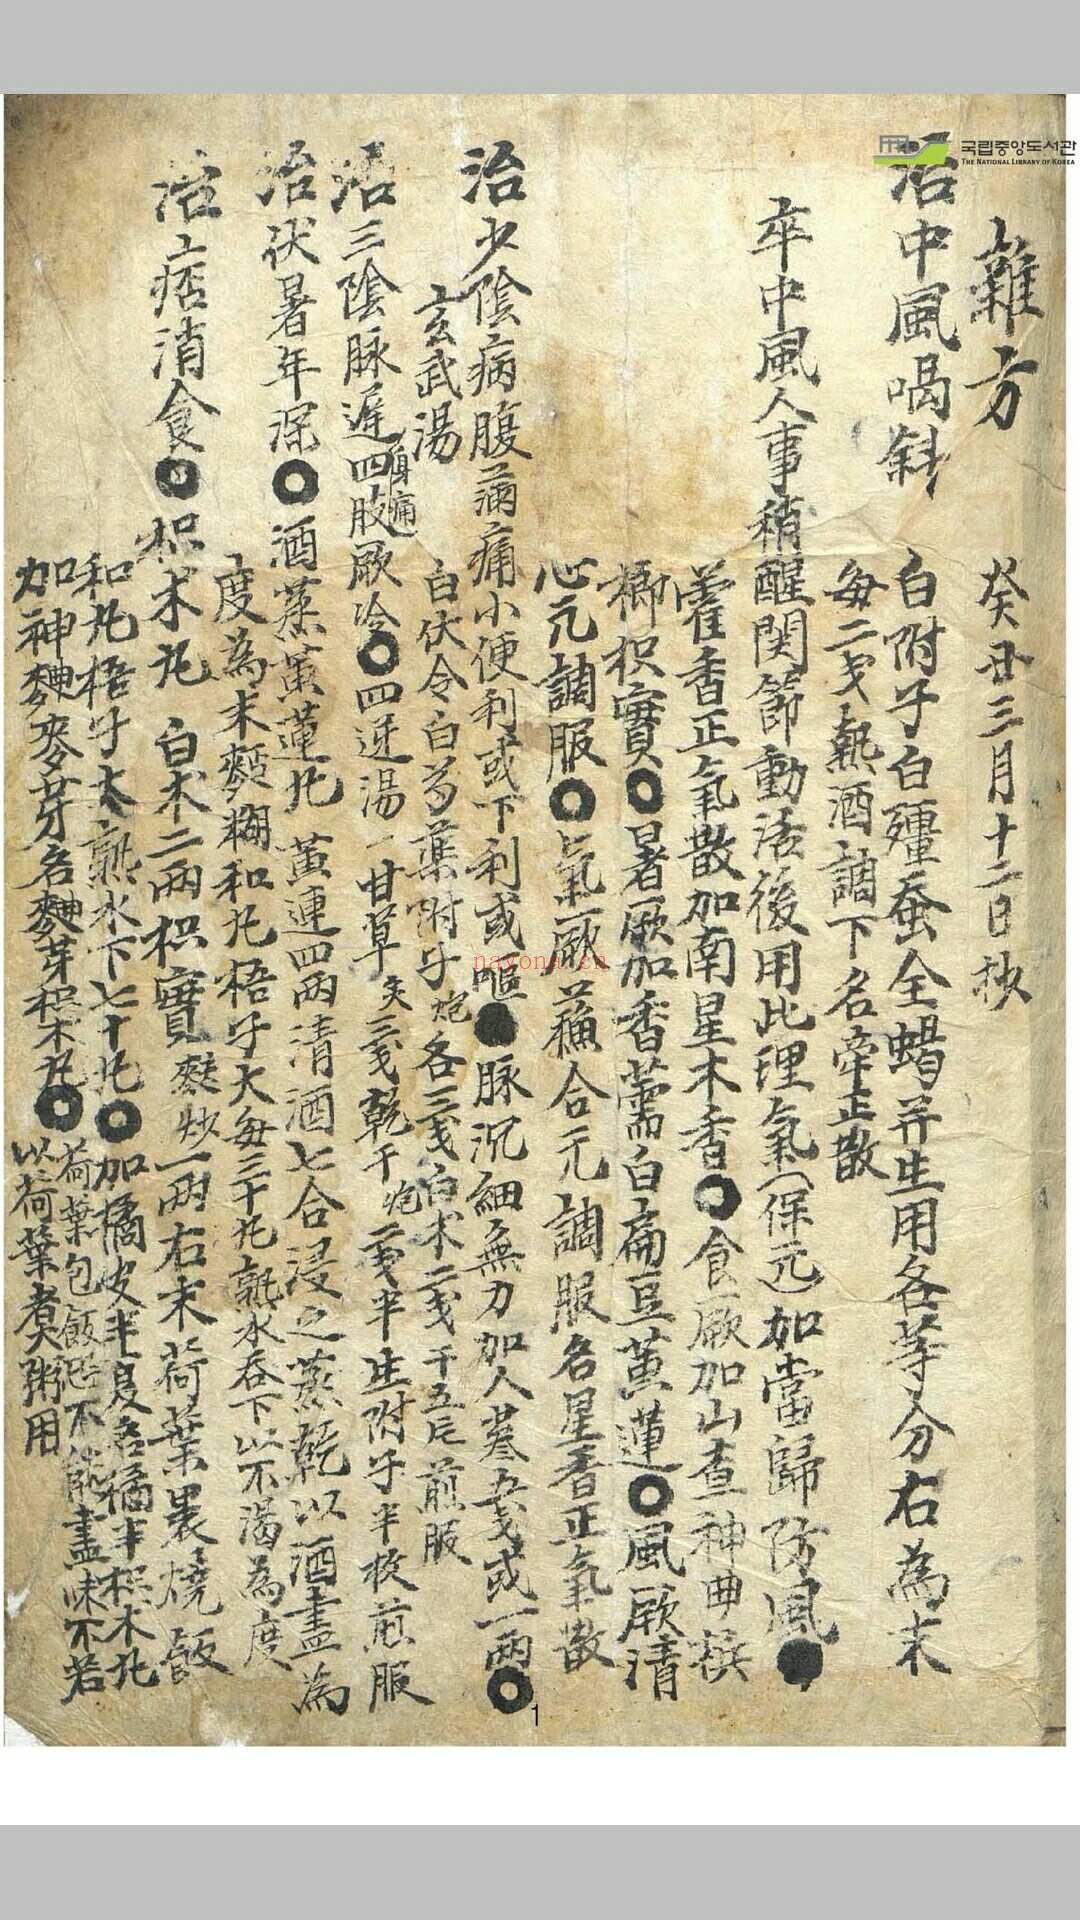 국립중앙도서관
THE NATIONAL LIBRARY OF KOREA
雜方 癸丑三月十二日抄
治中風喎斜 白附子白殭蚕全蝎幷生用各等分右為末
每二戔熱酒調下名牽正散
卒中風人事稍醒関節動活後用此理氣保元加當歸防風●
藿香正氣散加南星木香○食厥加山査神曲梹
榔枳實○暑厥加香薷白扁豆黃蓮○風厥清
心元調服○氣厥蘓合元調服名星香正氣散
治少陰病腹滿痛小便利或下利或嘔●脉沉細無力加人蔘五戔或一兩○
玄武湯 白伏令白芍藥附子炮各三戔白朮二戔干五片煎服
治三陰脉遲身痛四肢厥冷○四逆湯 甘草灸三戔乾干炮二戔半生附子半枚煎服
治伏暑年深○酒蒸黃蓮丸 黃連四兩清酒七合浸之蒸乾以酒盡為
度為末麪糊和丸梧子大每三十丸熟水呑下以不渴為度
治痞消食○枳朮丸 白朮二兩枳實麩炒一兩右末荷葉裹燒飯
和丸梧子大熟水下七十丸○加橘皮半夏名橘半枳朮丸
加神麯麥芽名麯芽枳朮丸○荷葉包飯燒不能盡味不若
以荷葉煮粥用
nayona.cn
1